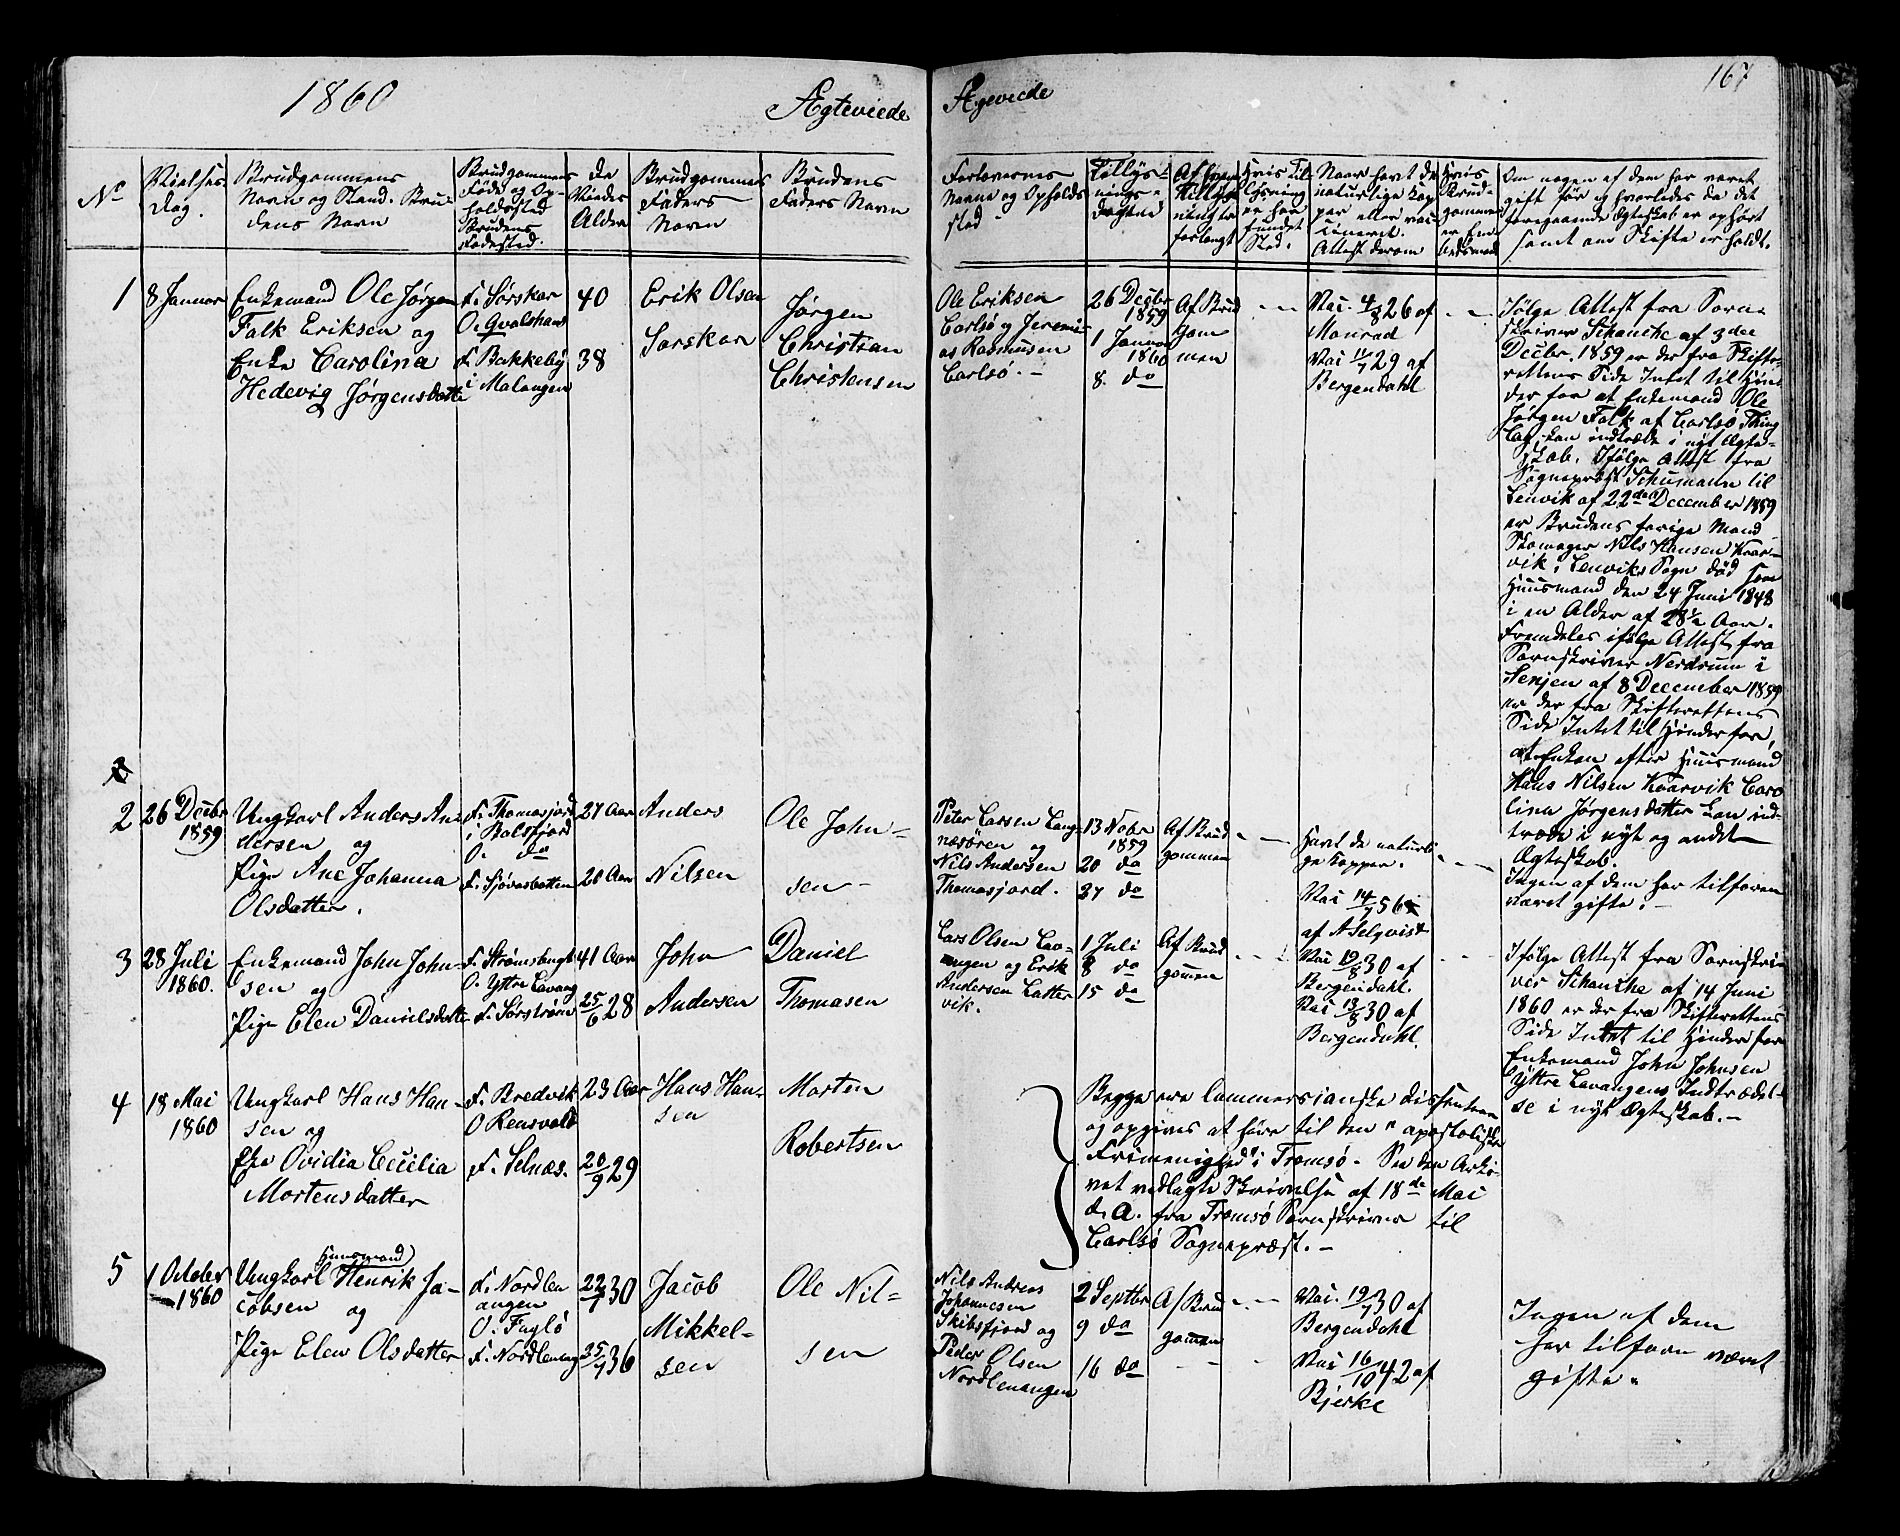 1860
Ægteviede
Ægeviede
167
No
Vielses
Dag.
Brudgommens
Navn og Stand. Bru-
dens Navn
Brudgommens
Føde og Op-
holdssted
Brudens
Fødested.
De
Viedes
Alder
Brudgommens
Faders
Navn
Brudens
Faders Navn
Forlovernes
Navne og Opholds
sted
Tillys-
nings-
Dagene
Af hvem
Tillys
forlangt
Hvis Til
lysning
ei har
fundet
Sted.
Naar havt de
naturlige Kop
per eller vac-
cineret.
Attest derom
Hvis
Brud-
gommen
er Em
bedsmand
Om nogen af dem har været
gift før og hvorledes da det
foregaaende Ægteskab er ophørt
samt om Skifte er holdt.
1
8 Januar
Enkemand Ole Jørgen
Falk Eriksen og
Enke Carolina
Hedevig Jørgensdatter
F. Sørskar
O. Gvalshaus
F. Bakkeby
i Malangen
40
38
Erik Olsen
Sørskar
Jørgen
Christian
Christensen
Ole Eriksen
Carlsø og Jeremi-
as Rasmusen
Carlsø. -
26 Decbr
1859
1 Januar
1860
8. do
Af Brud
gom
men
Vac. 4/8 26 af
Monrad
Vac 11/7 29 af
Bergendahl
Ifølge Attest fra Soren-
skriver Schanche af 3die
Decbr. 1859 er der fra Skifte-
rettens Side Intet til Hin-
der for at Enkemand Ole
Jørgen Falk af Carlsø Thing
lag, kan indtræde i nyt Ægte-
skab. Ifølge Attest fra
Sognepræst Schumann til
Lenvik af 22den December 1859
er Brudens forige Mand
Skomager Nils Hansen Kvar-
vik i Lenviks Sogn død som
Huusmand den 24 Juni 1848
i en Alder af 28½ Aar.
Fremdeles ifølge Attest fra
Sorenskriver Nerdrum i
Senjen af 8 December 1859
er der fra Skifterettens
Side Intet til Hinder for,
at Enken efter Huusmand
Hans Nilsen Kvarvik Caro
lina Jørgensdatter kan ind-
træde i nyt og andet
Ægteskab.
2
26 Decbr
1859
Ungkarl Anders An-
dersen og
Pige Ane Johanna
Olsdatter.
F. Thomasjord
i Balsfjord
O. do
F. Sjøvasbotten
27 Aar
20 Aar
Anders
Nilsen
Ole John-
sen -
Peter Larsen Lang-
nesøren og
Nils Andersen
Thomasjord.
13 Novbr
1859
20 do
27 do
Af Brud
gommen
Havt de naturli-
ge Kopper.
Vac 14/7 56
af A Selqvist
Ingen af dem har tilforn
været gifte. -
3
28 Juli
1860.
Enkemand John John-
sen og
Pige Elen Danielsdatter
F. Strømsbugt
O. Yttre Lavang
F. Sørstrøm
41 Aar
25/6 28
John
Andersen
Daniel
Thomasen
Lars Olsen Lav-
angen og Erik
Andersen Latter
vik.
1 Juli
8 do
15 do
Af Brud
gommen
Vac 19/8 30 af
Bergendahl.
Vac 13/8 30 af
Bergendahl.
Ifølge Attest fra Sorenskri-
ver Schanche af 14 Juni
1860 er der fra Skifterettens
Side Intet til Hinder for
Enkemand John Johnsen
Yttre Lavangens Indtrædel-
se i nyt Ægteskab. -
4
18 Mai
1860
Ungkarl Hans Han-
sen og
Pige Ovidia Cecilia
Mortensdatter
F. Bredvik
O Rensvold
F. Selnæs.
23 Aar
20/9 29
Hans Han-
sen
Morten
Robertsen
Begge ere Lammersianske Dissentere
og opgives at høre til den "apostoliske
Frimenighed" i Tromsø. See den Arki-
vet vedlagte Skrivelse af 18de Mai
d. A. fra Tromsø Sorenskriver til
Carlsø Sognepræst. -
5
1 October
1860
Huusmand
Ungkarl Henrik Ja-
cobsen og
Pige Elen Olsdatter
F. Nordlen
angen
O. Fuglø
F. Nordlenang
22/7 30
25/7 36
Jacob
Mikkel-
sen
Ole Nil-
sen
Nils Andreas
Johannesen
Skibsfjord og
Peder Olsen
Nordlenangen
2 Septbr
9 do
16 do
Af Brud
gommen
Vac. 19/7 30 af
Bergendahl
Vac 16/10 42 af
Bjerke
Ingen af dem
har tilforn været
gifte.